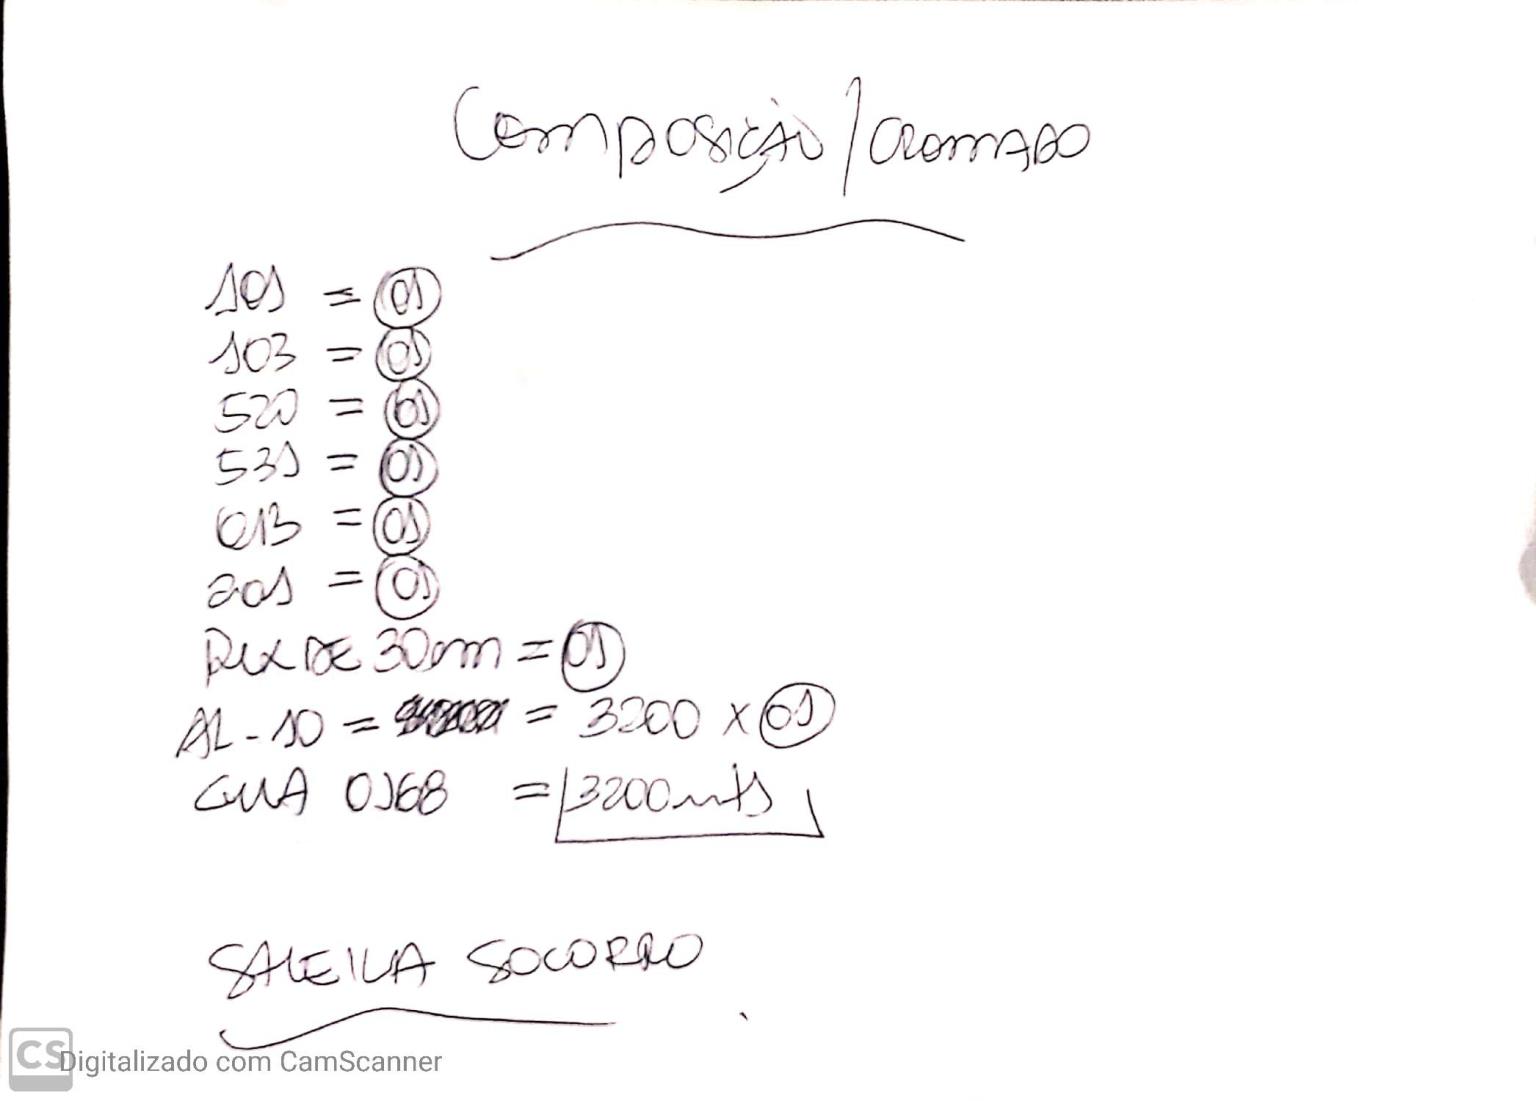 Composição / CROMADO
101 = 01
103 = 01
520 = 01
531 = 01
613 = 01
201 = 01
DE 30cm = 01
AL-10 = = 3200 x 01
0168 = 3200mts
SOCORRO
CS Digitalizado com CamScanner